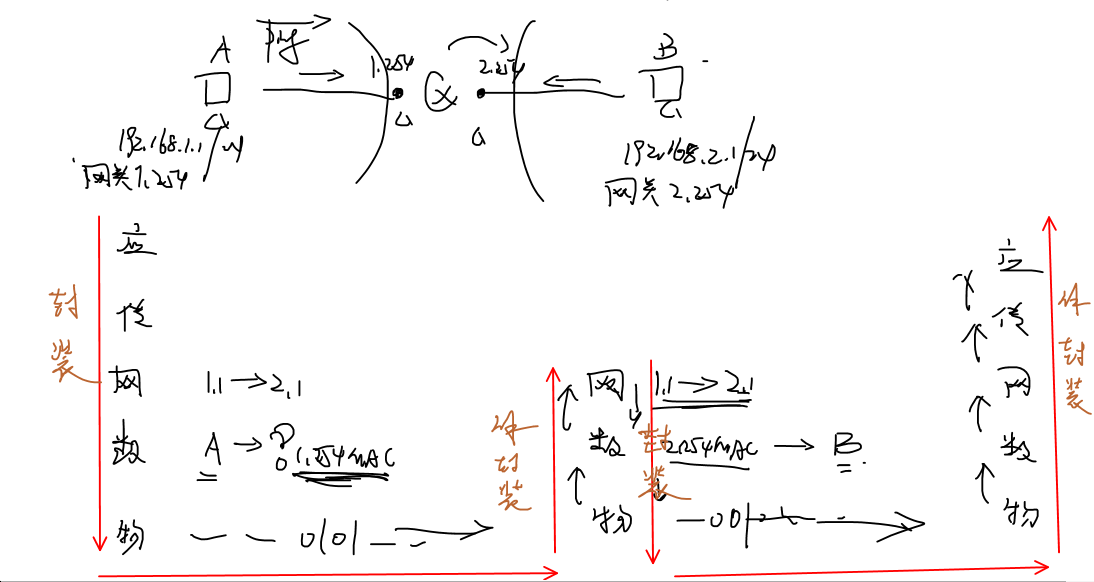 A ping B
1.254 2.254
192.168.1.1/24
网关1.254
192.168.2.1/24
网关 2.254
应
传
网 1.1→2.1
数 A→? 1.254MAC
物 0101
封装
解封装
网 1.1→2.1
数 2.254MAC→B
物 001
封装
应
传
网
数
物
解封装